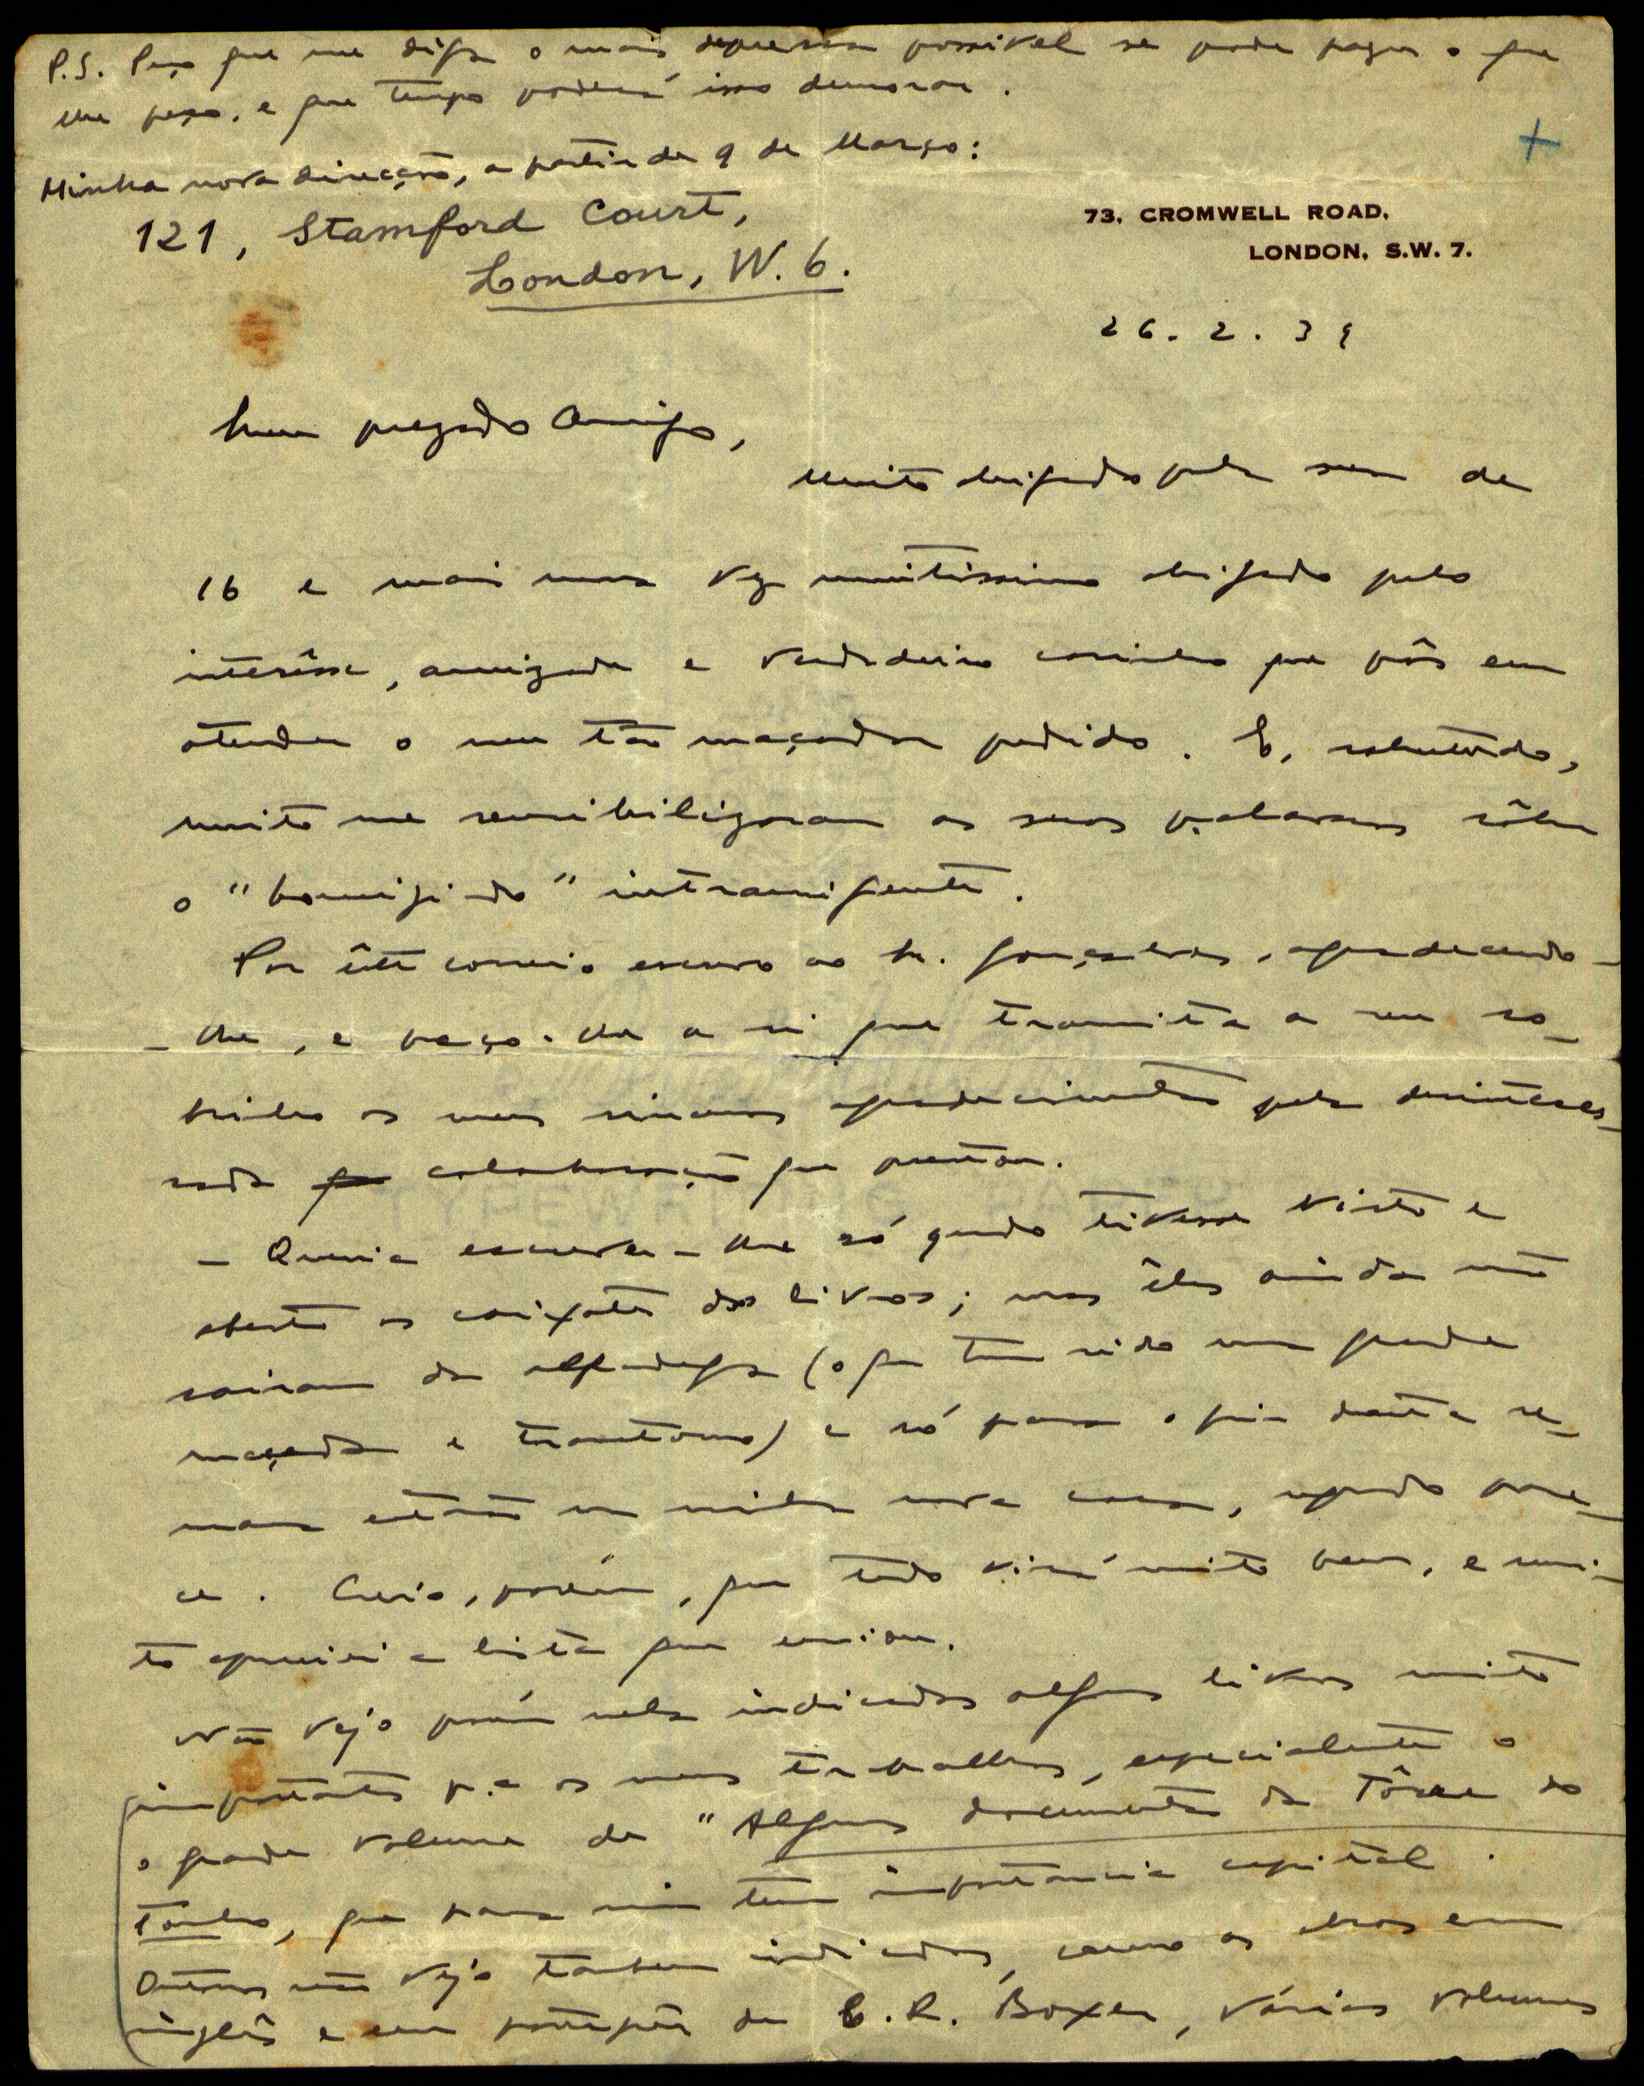 P.S. Peço que me diga o mais depressa possivel se pode fazer o que
lhe peço, e que tempo poderá isso demorar.
Minha nova direcção, a partir de 9 de Março:
121, Stamford Court,
London, W. 6.
73, CROMWELL ROAD,
LONDON, S.W. 7.
26. 2. 39
Meu prezado Amigo,
Muito obrigado pela sua de
16 e mais uma vez muitissimo obrigado pelo
interêsse, amizade e verdadeiro carinho que pôs em
atender o meu tão maçador pedido. E, sobretudo,
muito me sensibilizaram as suas palavras sôbre
o " " intransigente.
Por êste correio escrevo ao Sr. Gonçalves, agradecendo-
-lhe, e peço-lhe a si que transmita a seu so-
brinho os meus sinceros agradecimentos pela desinteres-
sada colaboração que prestou.
- Queria escrever-lhe só quando tivesse visto e
aberto os caixotes dos livros; mas êles ainda não
sairam da alfandega (o que tem sido uma grande
maçada e transtorno) e só para o fim desta se-
mana estarão na minha nova casa, segundo pare-
ce. Creio, porém, que tudo virá muito bem, e mui-
to apreciei a lista que enviou.
Não vejo porém nela indicados alguns livros muito
importantes p.a os meus trabalhos, especialmente o
o grande volume de "Alguns documentos da Tôrre do
Tombo, que para mim tem importancia capital.
Outros não vejo tambem indicados, como as obras em
inglês e em português de C. R. Boxer, vários volumes